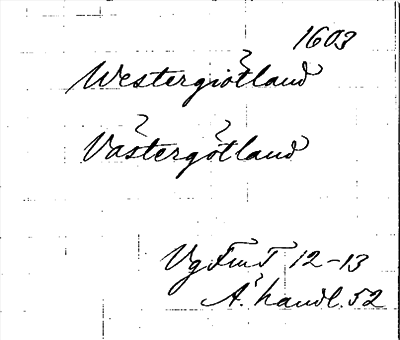 1603
Westergiötland
Västergötland
VgFmT 12-13
A. handl. 52